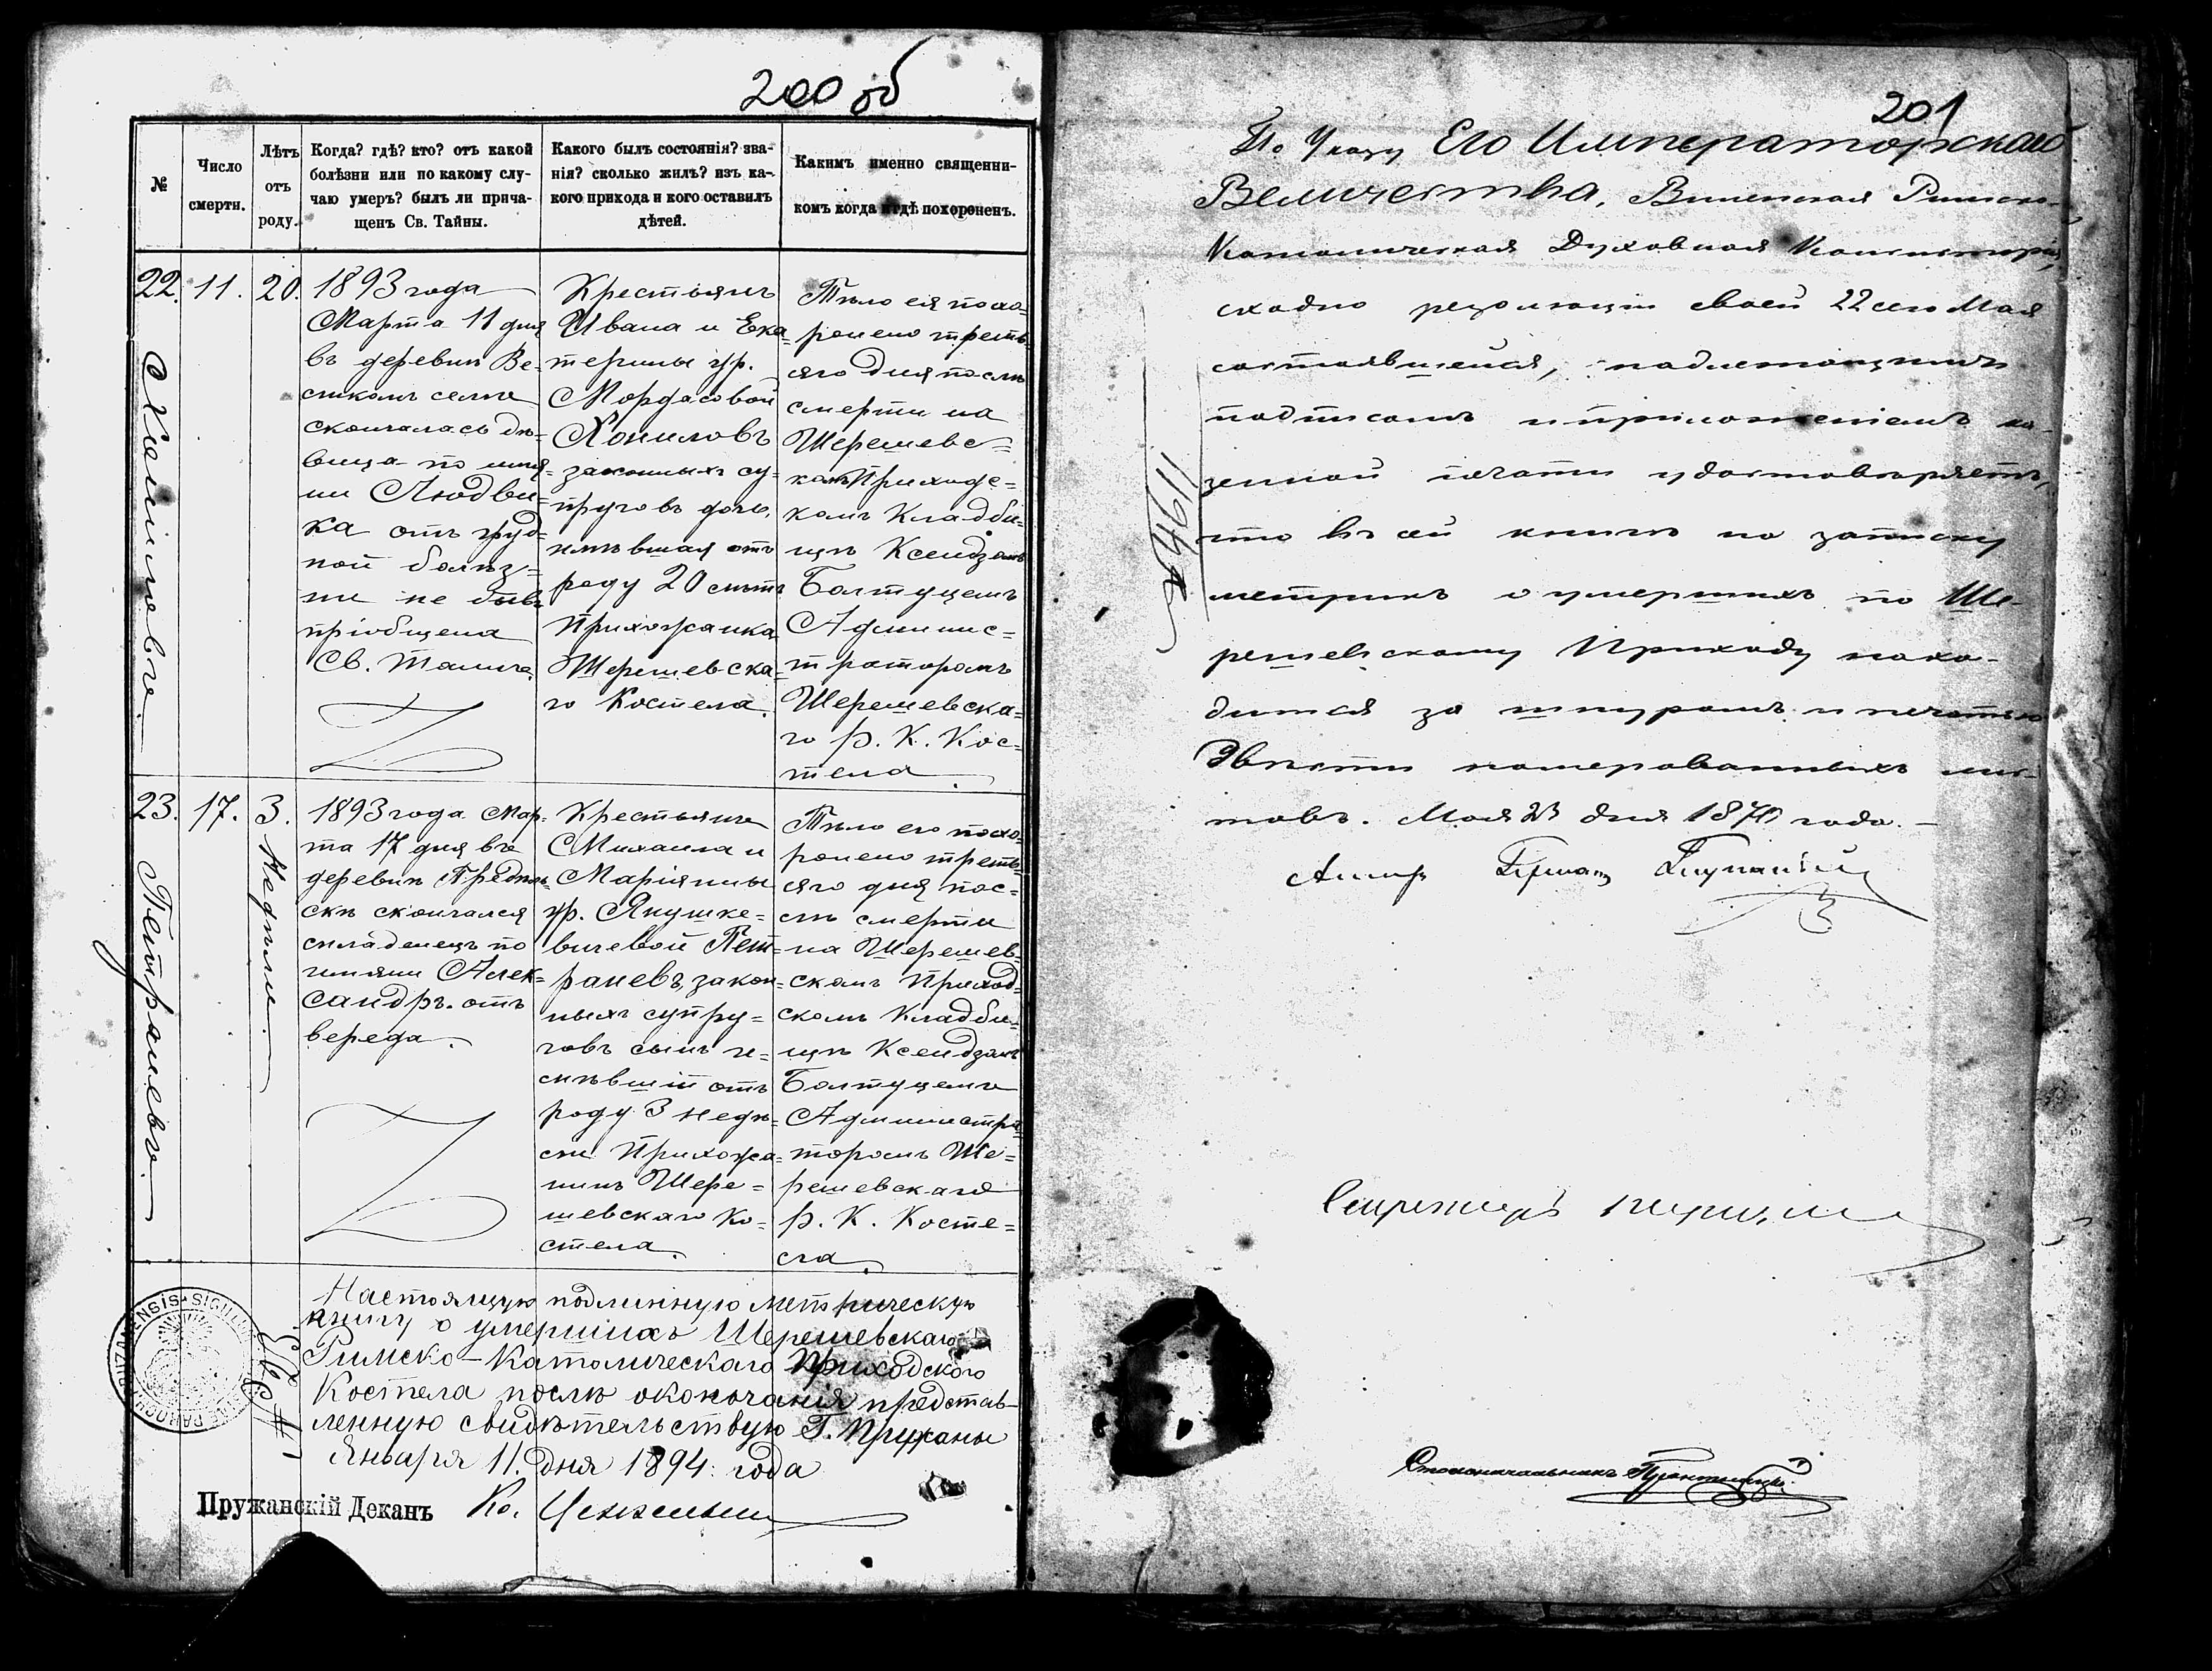 200 об
№
Число
смерти.
Лѣтъ
отъ
роду.
Когда? гдѣ? кто? отъ какой
болѣзни или по какому слу-
чаю умеръ? былъ ли прича-
щенъ Св. Тайны.
Какого былъ состоянія? зва-
нія? сколько жилъ? изъ ка-
кого прихода и кого оставилъ
дѣтей.
Каким именно священни-
комъ когда и гдѣ похороненъ.
22.
11.
20.
1893 года
Марта 11 дня
въ деревнѣ Ве-
скончалась дѣ=
вица по име=
ни Людви=
ка отъ груд=
ной болѣз=
ни не бывъ
пріобщена
Св. Таинъ.
Крестьянъ
Ивана и Ека=
терины ур.
Мордасовой
законныхъ су=
пруговъ дочь,
имѣвшая отъ
роду 20 лѣтъ
Прихожанка
Шерешевска=
го Костела.
Тѣло ея похо=
ронено треть=
яго дня послѣ
смерти на
Шерешевс=
комъ Приходс=
комъ Кладби=
щѣ Ксендзомъ
Болтуцемъ
Админис=
траторомъ
Шерешевска=
го Р. К. Кос=
тела.
23.
Петраневъ
17.
3.
Недѣли.
1893 года Мар=
та 17 дня въ
деревнѣ
скончался
младенецъ по
имени Алек=
сандръ отъ
вереда.
Крестьянъ
Михаила и
Маріянны
ур. Якушке=
вичевой Пет=
раневъ, закон=
ныхъ супру=
говъ сынъ и=
мѣвшій отъ
роду 3 недѣ=
ли Прихожа=
нинъ Шере=
шевскаго Ко=
стела.
Тѣло его похо=
ронено треть=
яго дня пос=
лѣ смерти
на Шерешев=
скомъ Приход=
скомъ Кладби=
щѣ Ксендзомъ
Болтуцемъ
Администра=
торомъ Ше=
решевскаго
Р. К. Косте=
ла.
Настоящую подлинную метрическую
книгу о умершихъ Шерешевскаго
Римско-Католическаго Приходского
Костела послѣ окончанія представ-
ленную свидѣтельствую Г. Пружаны
Января 11. Дня 1894 года
Пружанскій Деканъ Кс.
201
По Указу Его Императорскаго
Величества, Виленская Римско-
Католическая Духовная Консисторія,
сходно резолюціи своей 22 сего Мая
состоявшейся, надлежащимъ
подписомъ и приложеніемъ ка-
зенной печати удостовѣряетъ,
что въ сей книгѣ по записку
метрикъ о умершихъ по Ше-
решевскому Приходу нахо-
дится за шнуромъ и печатью
Двѣсти номерованныхъ лис-
товъ. Мая 23 дня 1870 года.
№ 4611
Секретарь
Столоначальникъ